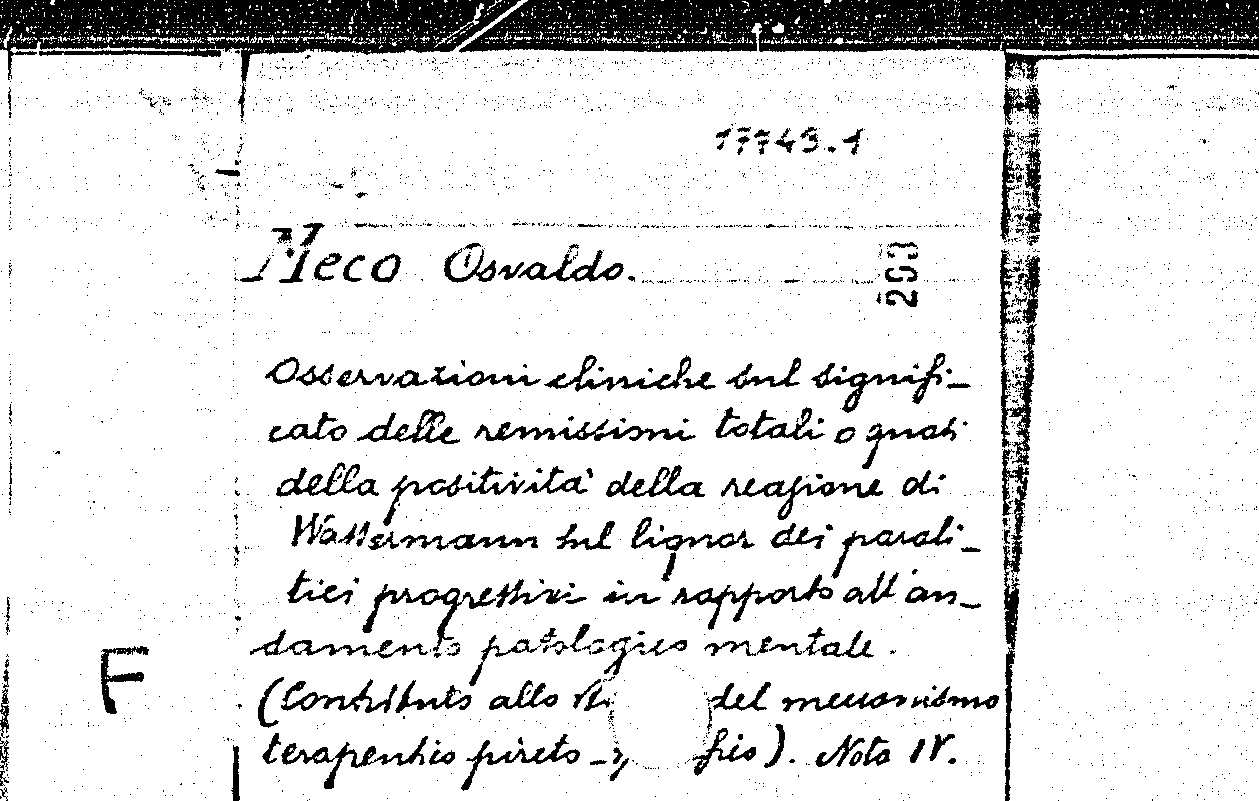 17749.1
Meco Osvaldo.
293
Osservazioni cliniche sul signifi-
cato delle remissioni totali o quasi
della positività della reazione di
Wassermann sul liquor dei parali-
tici progressivi in rapporto all'an-
damento patologico mentale.
F
(Contributo allo del meccanismo
terapeutico pireto-). Nota IV.